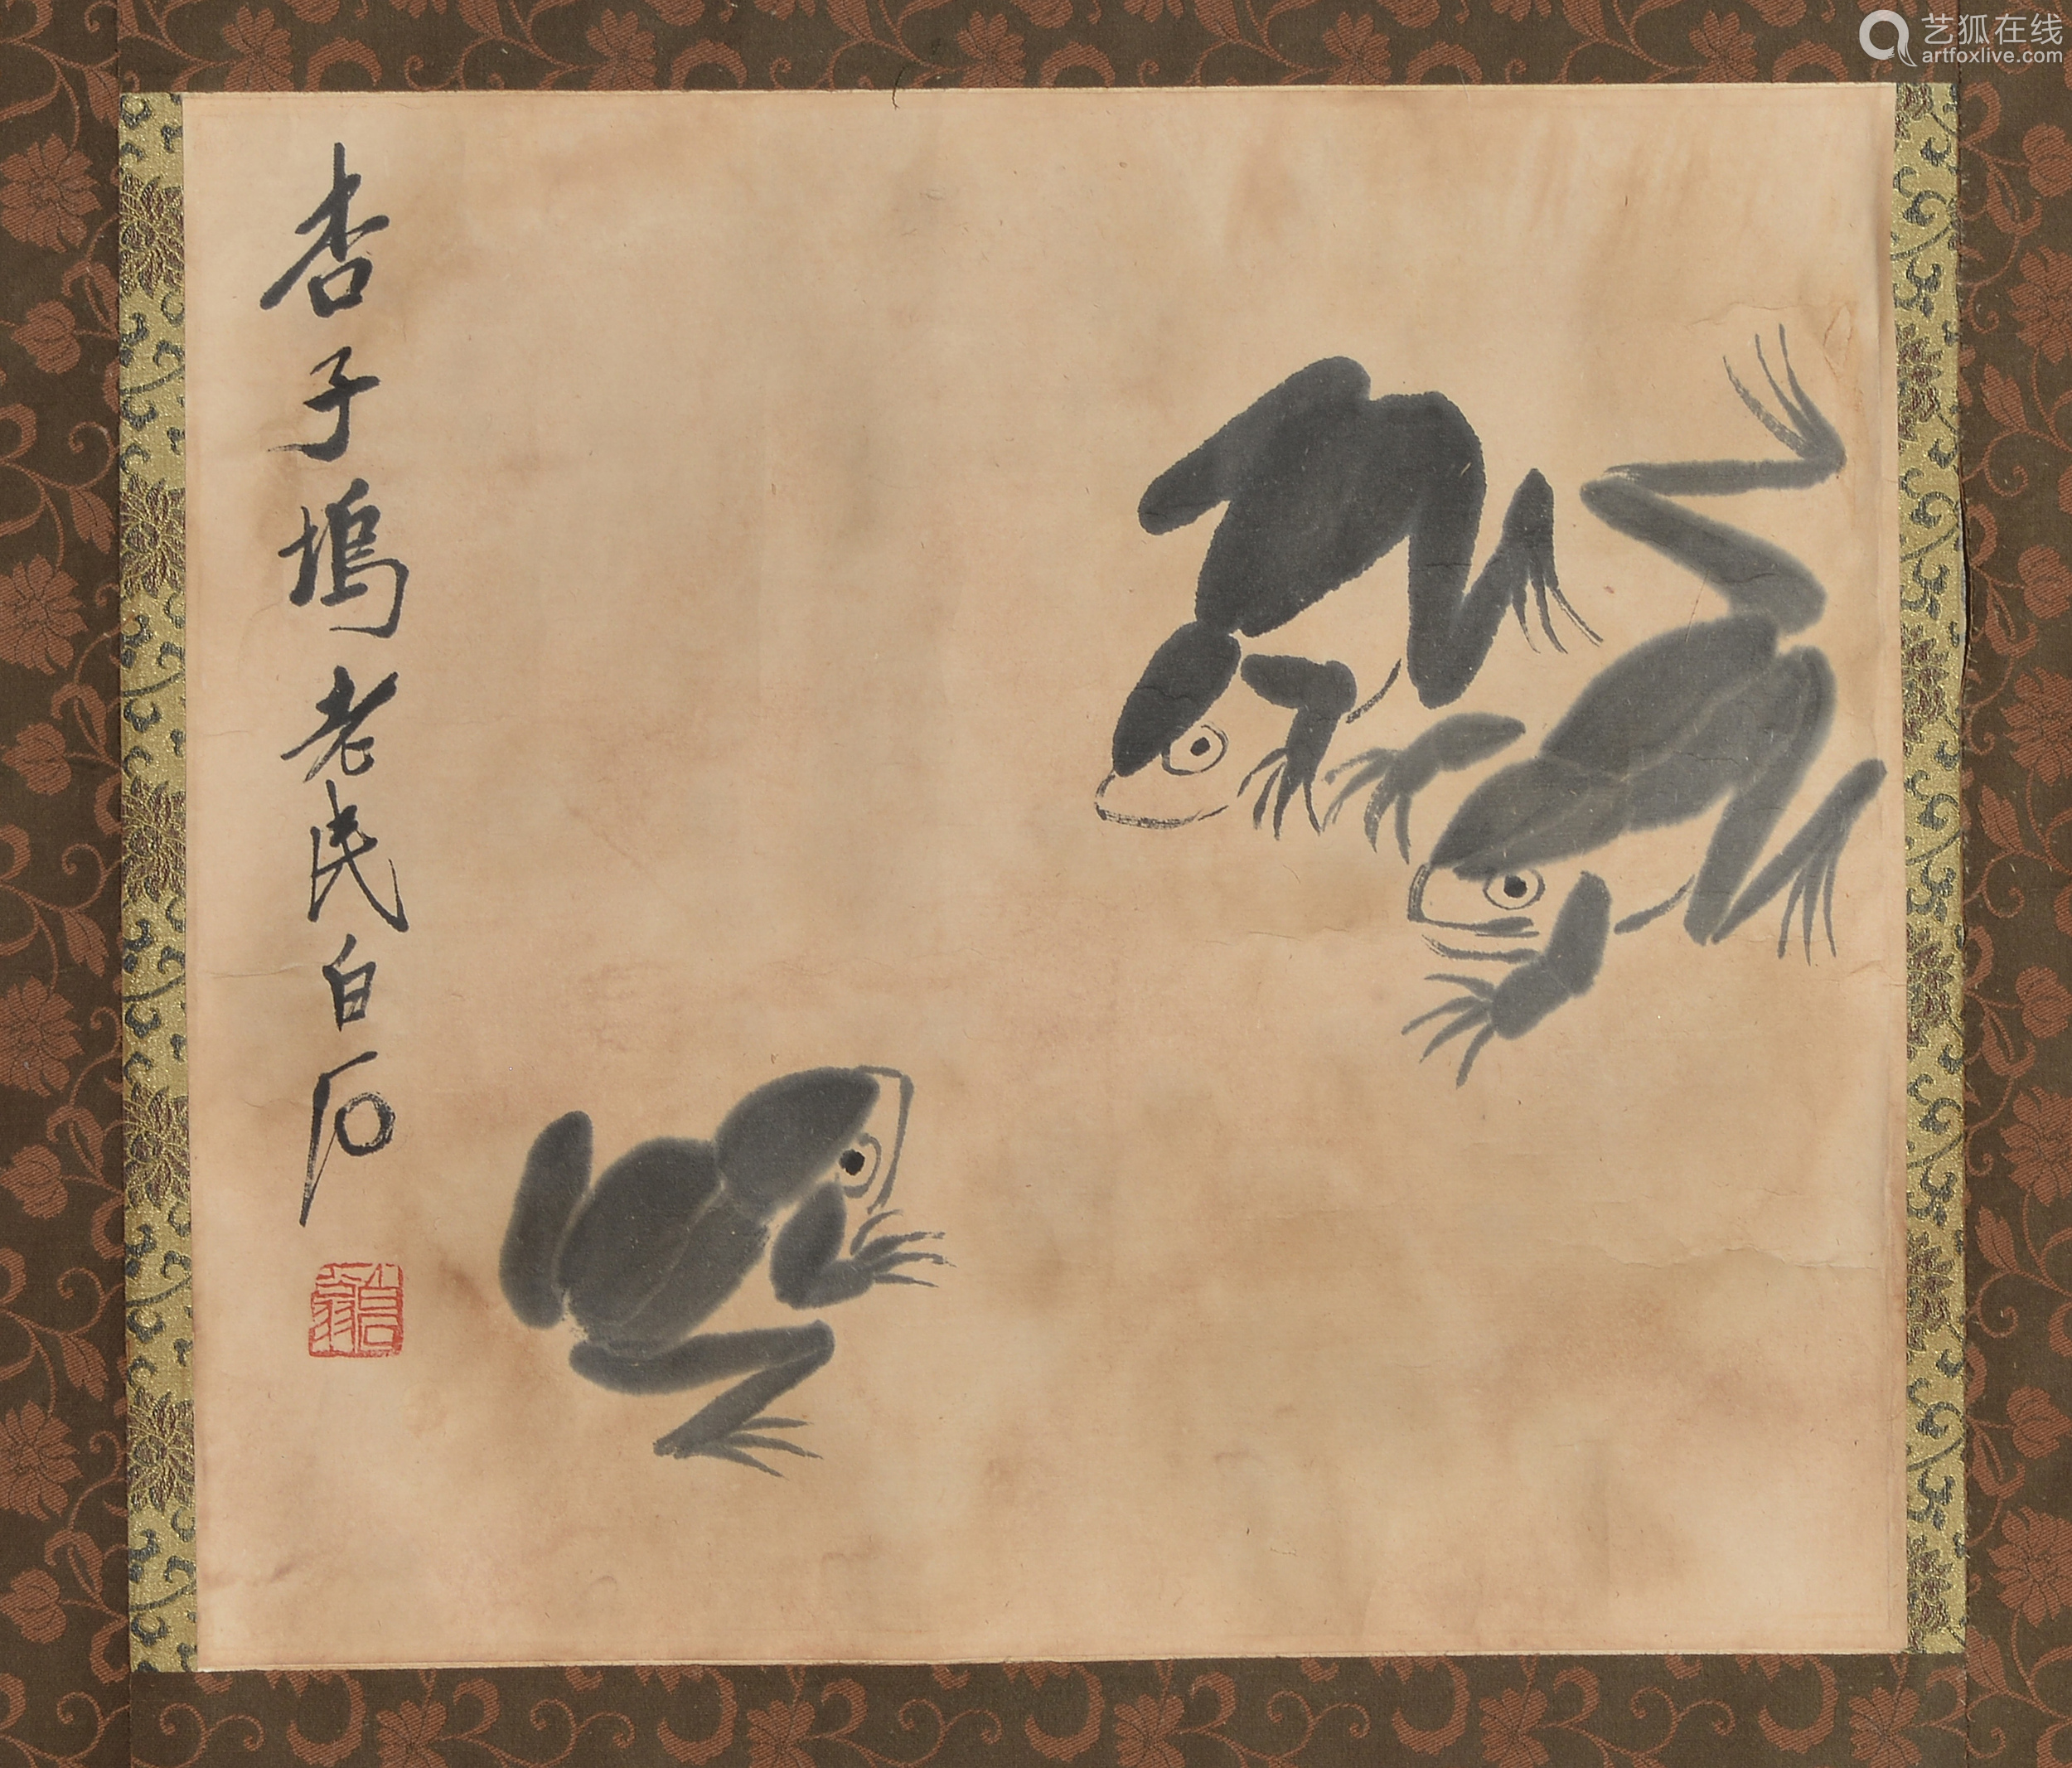 艺狐在线
artfoxlive.com
杏子塢老民白石
白石翁